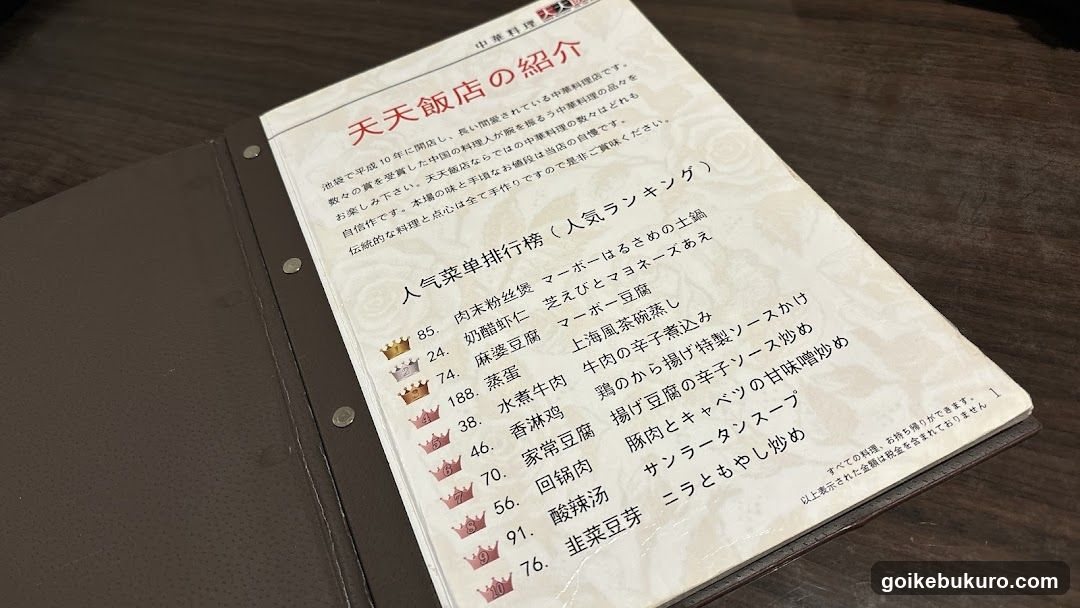 中華料理 天天飯
天天飯店の紹介
池袋で平成10年に開店し、長い間愛されている中華料理店です。
数々の賞を受賞した中国の料理人が腕を振るう中華料理の品々を
お楽しみ下さい。天天飯店ならではの中華料理の数々はどれも
自信作です。本場の味と手頃なお値段は当店の自慢です。
伝統的な料理と点心は全て手作りですので是非ご賞味ください。
人气菜单排行榜(人気ランキング)
1 85. 肉末粉丝煲 マーボーはるさめの土鍋
2 24. 奶醋虾仁 芝えびとマヨネーズあえ
3 74. 麻婆豆腐 マーボー豆腐
4 188. 蒸蛋 上海風茶碗蒸し
5 38. 水煮牛肉 牛肉の辛子煮込み
6 46. 香淋鸡 鶏のから揚げ特製ソースかけ
7 70. 家常豆腐 揚げ豆腐の辛子ソース炒め
8 56. 回锅肉 豚肉とキャベツの甘味噌炒め
9 91. 酸辣汤 サンラータンスープ
10 76. 韭菜豆芽 ニラともやし炒め
すべての料理、お持ち帰りができます。
以上表示された金額は税金を含まれておりません
1
goikebukuro.com